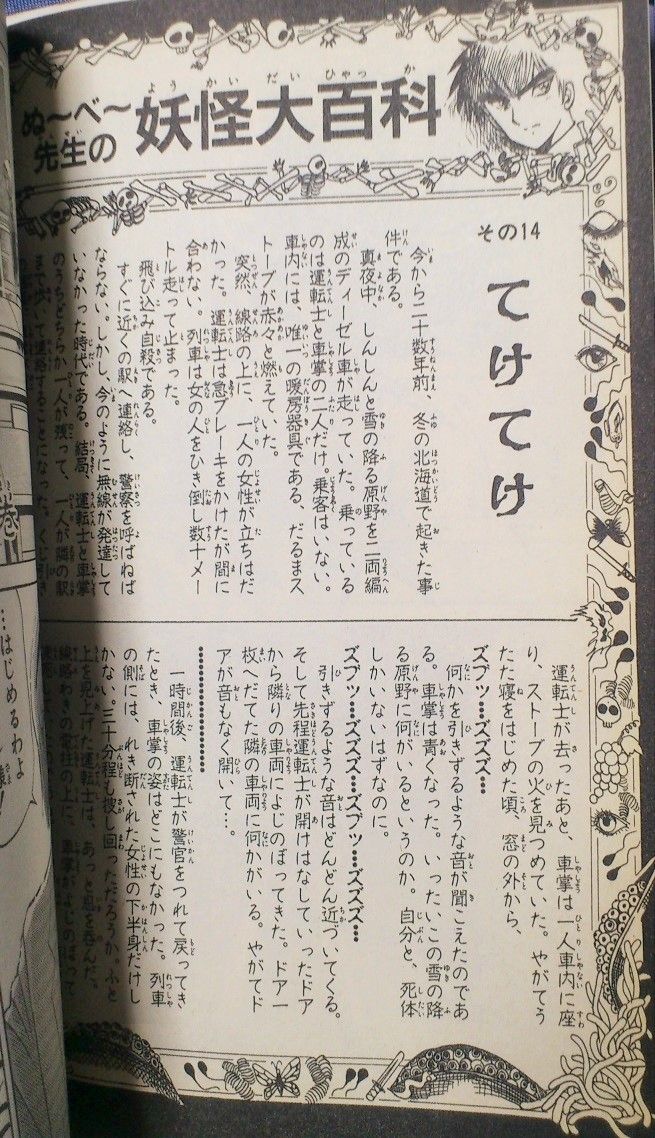 ぬ〜べ〜先生の
妖怪大百科
その14
てけてけ
今から二十数年前、冬の北海道で起きた事
件である。
真夜中、しんしんと雪の降る原野を二両編
成のディーゼル車が走っていた。乗っている
のは運転士と車掌の二人だけ。乗客はいない。
車内には、唯一の暖房器具である、だるまス
トーブが赤々と燃えていた。
突然、線路の上に、一人の女性が立ちはだ
かった。運転士は急ブレーキをかけたが間に
合わない。列車は女の人をひき倒し数十メー
トル走って止まった。
飛び込み自殺である。
すぐに近くの駅へ連絡し、警察を呼ばねば
ならない。しかし、今のように無線が発達して
いなかった時代である。結局、運転士と車掌
のうちどちらか一人が残って、一人が隣の駅
まで歩いて連絡することになった。
運転士が去ったあと、車掌は一人車内に座
り、ストーブの火を見つめていた。やがてう
たた寝をはじめた頃、窓の外から、
ズブッ…ズズズ…
何かを引きずるような音が聞こえたのであ
る。車掌は青くなった。いったいこの雪の降
る原野に何がいるというのか。自分と、死体
しかいないはずなのに。
ズブッ…ズズズ…ズブッ…ズズズ…
引きずるような音はどんどん近づいてくる。
そして先程運転士が開けはなしていったドア
から隣りの車両によじのぼってきた。ドア一
枚へだてた隣の車両に何かがいる。やがてド
アが音もなく開いて…。
…………………
一時間後、運転士が警官をつれて戻ってき
たとき、車掌の姿はどこにもなかった。列車
の側には、れき断された女性の下半身だけし
かない。三十分程も捜し回っただろうか。ふと
上を見上げた運転士は、あっと息を呑んだ。
線路わきの電柱の上に、車掌がよじのぼって
巻
…はじめるわよ